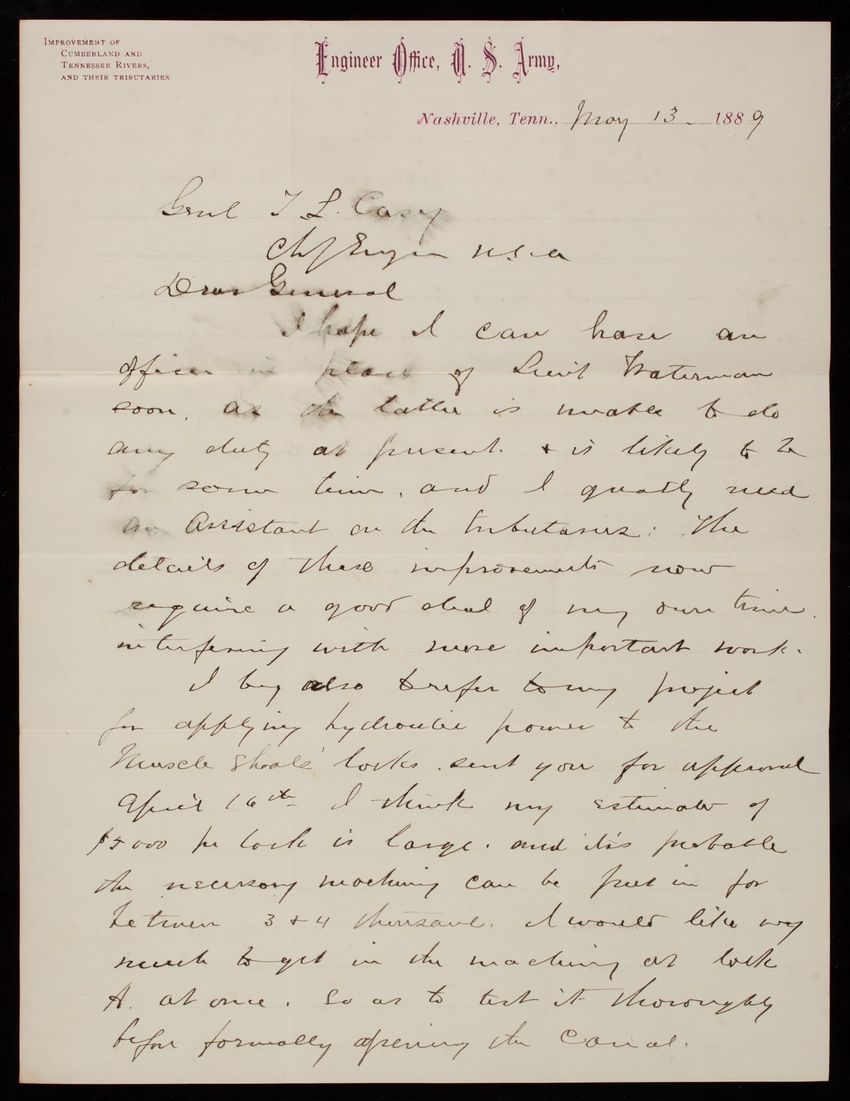 IMPROVEMENT OF
CUMBERLAND AND
TENNESSEE RIVERS,
AND THEIR TRIBUTARIES.
Engineer Office, U. S. Army,
Nashville, Tenn., May 13. 1889
Genl T L. Casey
Chf Engin U.S.A
Dear General
I hope I can have an
officer in place of Lieut Waterman
soon, as the latter is unable to do
any duty at present & is likely to be
for some time, and I greatly need
an Assistant on the tributaries: The
details of these improvements now
require a good deal of my own time.
interfering with more important work.
I beg also to refer to my project
for applying hydraulic power to the
Muscle Shoals locks sent you for approval
April 16th I think my estimate of
$5000 per lock is large. and it is probable
the necessary machinery can be put in for
between 3 & 4 thousand. I would like very
much to get in the machinery at lock
A. at once. So as to test it thoroughly
before formally opening the Canal.